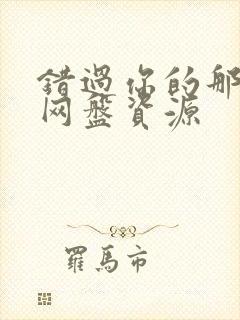 错過你的那
网盤資源
羅馬市